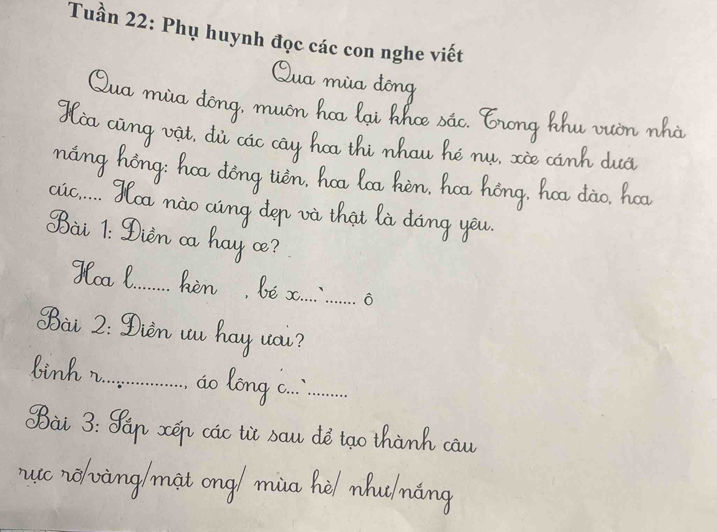 Tuần 22: Phụ huynh đọc các con nghe viết
Qua mùa đông
Qua mùa đông, muôn hoa lại khoe sắc. Trong khu vườn nhà
Hòa cũng vật, đủ các cây hoa thi nhau hé nụ, xòe cánh dưới
nắng hồng: hoa đồng tiền, hoa loa kèn, hoa hồng, hoa đào, hoa
cúc,.... Hoa nào cũng đẹp và thật là đáng yêu.
Bài 1: Điền oa hay oe?
Hoa l........ kèn , bé x....̀....... ô
Bài 2: Điền ưu hay ươu?
bình r....̣..............., áo lông c...̀.........
Bài 3: Sắp xếp các từ sau để tạo thành câu
rực rỡ/vàng/mật ong/ mùa hè/ như/nắng